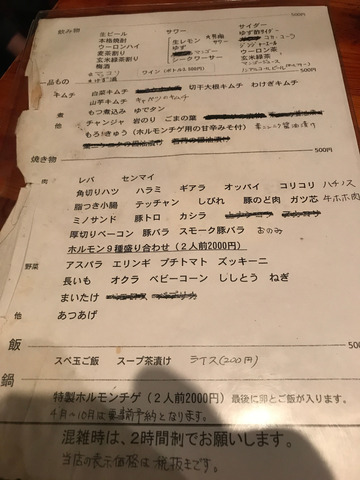 飲み物 500円
生ビール サワー サイダー
本格焼酎 生レモン サワー ゆず酢サイダー
ウーロンハイ ゆず コカ・コーラ
麦茶割り マンゴー ジンジャーエール
玄米緑茶割り シークワーサー ウーロン茶
梅酒 玄米緑茶
マンゴージュース
ワイン(ボトル3,500円) ノンアルコールビール
一品もの 500円
キムチ 白菜キムチ 切干大根キムチ わけぎキムチ
山芋キムチ キャベツのキムチ
煮 もつ煮込み ゆでタン
他 チャンジャ 岩のり ごまの葉
もろきゅう(ホルモンチゲ用の甘辛みそ付) 青ニンニク醤油漬け
焼き物 500円
肉 レバ センマイ
角切りハツ ハラミ ギアラ オッパイ コリコリ ハチノス
脂つき小腸 テッチャン しびれ 豚のど肉 ガツ芯 牛ホホ肉
ミノサンド 豚トロ カシラ
厚切りベーコン 豚バラ スモーク豚バラ おのみ
ホルモン9種盛り合わせ(2人前2000円)
野菜 アスパラ エリンギ プチトマト ズッキーニ
長いも オクラ ベビーコーン ししとう ねぎ
まいたけ
他 あつあげ
飯 500円
スペ玉ご飯 スープ茶漬け ライス(200円)
鍋
特製ホルモンチゲ(2人前2000円) 最後に卵とご飯が入ります。
4月〜10月は事前予約となります。
混雑時は、2時間制でお願いします。
当店の表示価格は税抜きです。